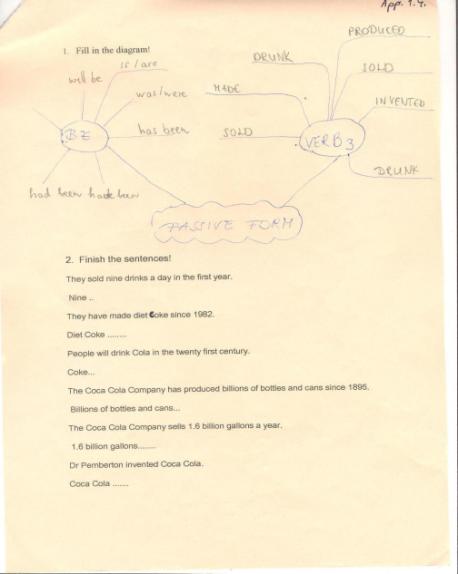 App. 1.4.
1. Fill in the diagram!
PRODUCED
DRUNK
is / are
SOLD
will be
was/were
MADE
INVENTED
has been
SOLD
BE
VERB 3
DRUNK
had been
PASSIVE FORM
2. Finish the sentences!
They sold nine drinks a day in the first year.
Nine ..
They have made diet Coke since 1982.
Diet Coke ........
People will drink Cola in the twenty first century.
Coke...
The Coca Cola Company has produced billions of bottles and cans since 1895.
Billions of bottles and cans...
The Coca Cola Company sells 1.6 billion gallons a year.
1.6 billion gallons.......
Dr Pemberton invented Coca Cola.
Coca Cola .......